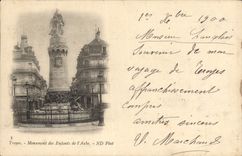 1er Xbre 1900
Monsieur
Souvenir de mon
voyage de Troyes
affranchissement
compris
amitiés sincères
V. Marchand
Troyes. - Monument des Enfants de l'Aube. - ND Phot